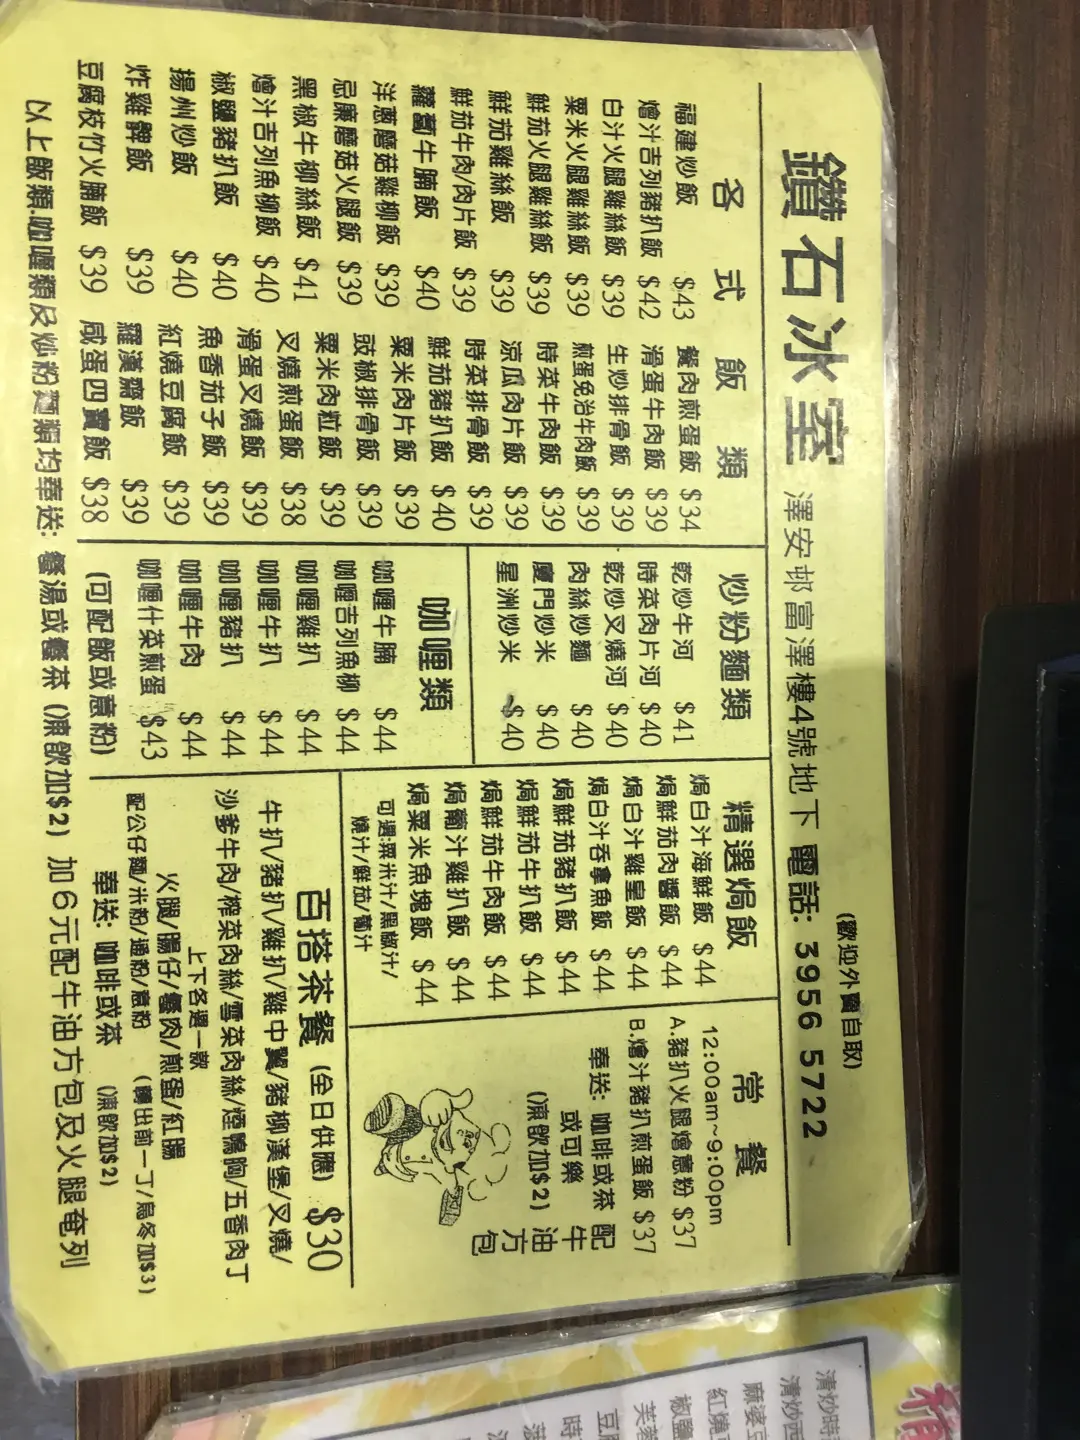 鑽石冰室 澤安邨富澤樓4號地下 電話: 3956 5722
(歡迎外賣自取)
各式飯類
福建炒飯 $43
燴汁吉列豬扒飯 $42
白汁火腿雞絲飯 $39
粟米火腿雞絲飯 $39
鮮茄火腿雞絲飯 $39
鮮茄雞絲飯 $39
鮮茄牛肉/肉片飯 $39
蘿蔔牛腩飯 $40
洋蔥磨菇雞柳飯 $39
忌廉磨菇火腿飯 $39
黑椒牛柳絲飯 $41
燴汁吉列魚柳飯 $40
椒鹽豬扒飯 $40
揚州炒飯 $40
炸雞髀飯 $39
豆腐枝竹火腩飯 $39
餐肉煎蛋飯 $34
滑蛋牛肉飯 $39
生炒排骨飯 $39
煎蛋免治牛肉飯 $39
時菜牛肉飯 $39
涼瓜肉片飯 $39
時菜排骨飯 $39
鮮茄豬扒飯 $40
粟米肉片飯 $39
豉椒排骨飯 $39
粟米肉粒飯 $39
叉燒煎蛋飯 $38
滑蛋叉燒飯 $39
魚香茄子飯 $39
紅燒豆腐飯 $39
羅漢齋飯 $39
咸蛋四寶飯 $38
炒粉麵類
乾炒牛河 $41
時菜肉片河 $40
乾炒叉燒河 $40
肉絲炒麵 $40
廈門炒米 $40
星洲炒米 $40
咖喱類
咖喱牛腩 $44
咖喱吉列魚柳 $44
咖喱雞扒 $44
咖喱牛扒 $44
咖喱豬扒 $44
咖喱牛肉 $44
咖喱什菜煎蛋 $43
(可配飯或意粉)
精選焗飯
焗白汁海鮮飯 $44
焗鮮茄肉醬飯 $44
焗白汁雞皇飯 $44
焗白汁吞拿魚飯 $44
焗鮮茄豬扒飯 $44
焗鮮茄牛扒飯 $44
焗鮮茄牛肉飯 $44
焗葡汁雞扒飯 $44
焗粟米魚塊飯 $44
可選:粟米汁/黑椒汁/
燒汁/鮮茄/葡汁
常餐
12:00am~9:00pm
A.豬扒火腿燴意粉 $37
B.燴汁豬扒煎蛋飯 $37
奉送: 咖啡或茶
或可樂
(凍飲加$2)
配牛油方包
百搭茶餐 (全日供應) $30
牛扒/豬扒/雞扒/雞中翼/豬柳漢堡/叉燒/
沙爹牛肉/榨菜肉絲/雪菜肉絲/煙鴨胸/五香肉丁
上下各選一款
火腿/腸仔/餐肉/煎蛋/紅腸
配公仔麵/米粉/通粉/意粉 (轉出前一丁/烏冬加$3)
奉送: 咖啡或茶 (凍飲加$2)
以上飯類.咖喱類及炒粉麵類均奉送: 餐湯或餐茶 (凍飲加$2) 加6元配牛油方包及火腿奄列
清炒時
清炒西
麻婆豆
紅燒
椒鹽
芙蓉
豆腐
時
菠